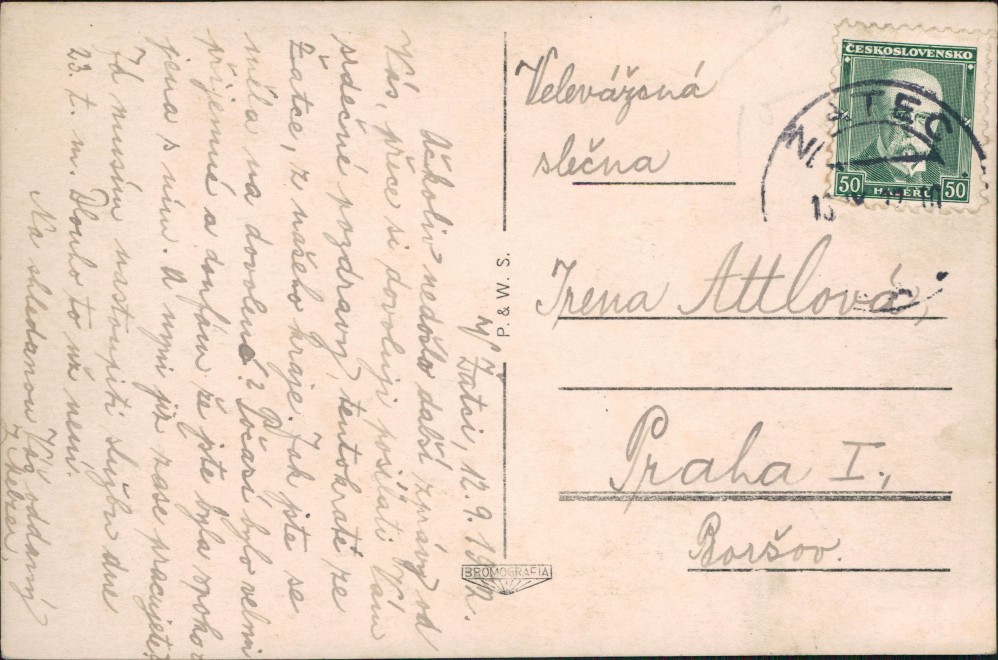 V Žatci, 12. 9. 19
Ačkoliv nedošlo další zprávy od
Vás, přece si dovoluji posílati Vám
srdečné pozdravy, tentokráte ze
Žatce, z našeho kraje. Jak jste se
měla na dovolené? Počasí bylo velmi
příjemné a doufám že jste byla spoko-
jena s ním. A nyní již zase pracujete?
Já musím nastoupiti službu dne
23. t. m. Dlouho to už není.
Na shledanou Váš oddaný
P. & W. S.
BROMOGRAFIA
ČESKOSLOVENSKO
50 HALÉŘŮ 50
ATEC
Velevážená
slečna
Irena Attlová,
Praha I.,
Boršov.